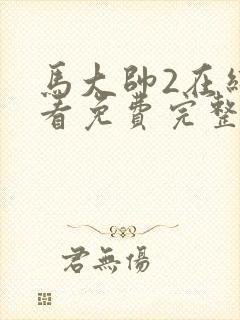 馬大帥2在
看免費完整
君無傷